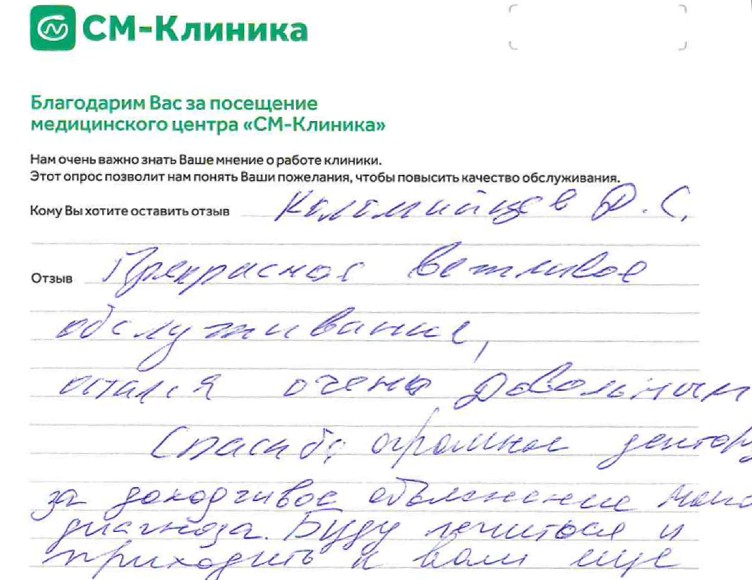 СМ-Клиника
Благодарим Вас за посещение
медицинского центра «СМ-Клиника»
Нам очень важно знать Ваше мнение о работе клиники.
Этот опрос позволит нам понять Ваши пожелания, чтобы повысить качество обслуживания.
Кому Вы хотите оставить отзыв Коломийцев Р.С.
Отзыв Прекрасное вежливое
обслуживание,
остался очень довольным
Спасибо огромное доктору
за доходчивое объяснение моего
диагноза. Буду лечиться и
приходить к вам еще